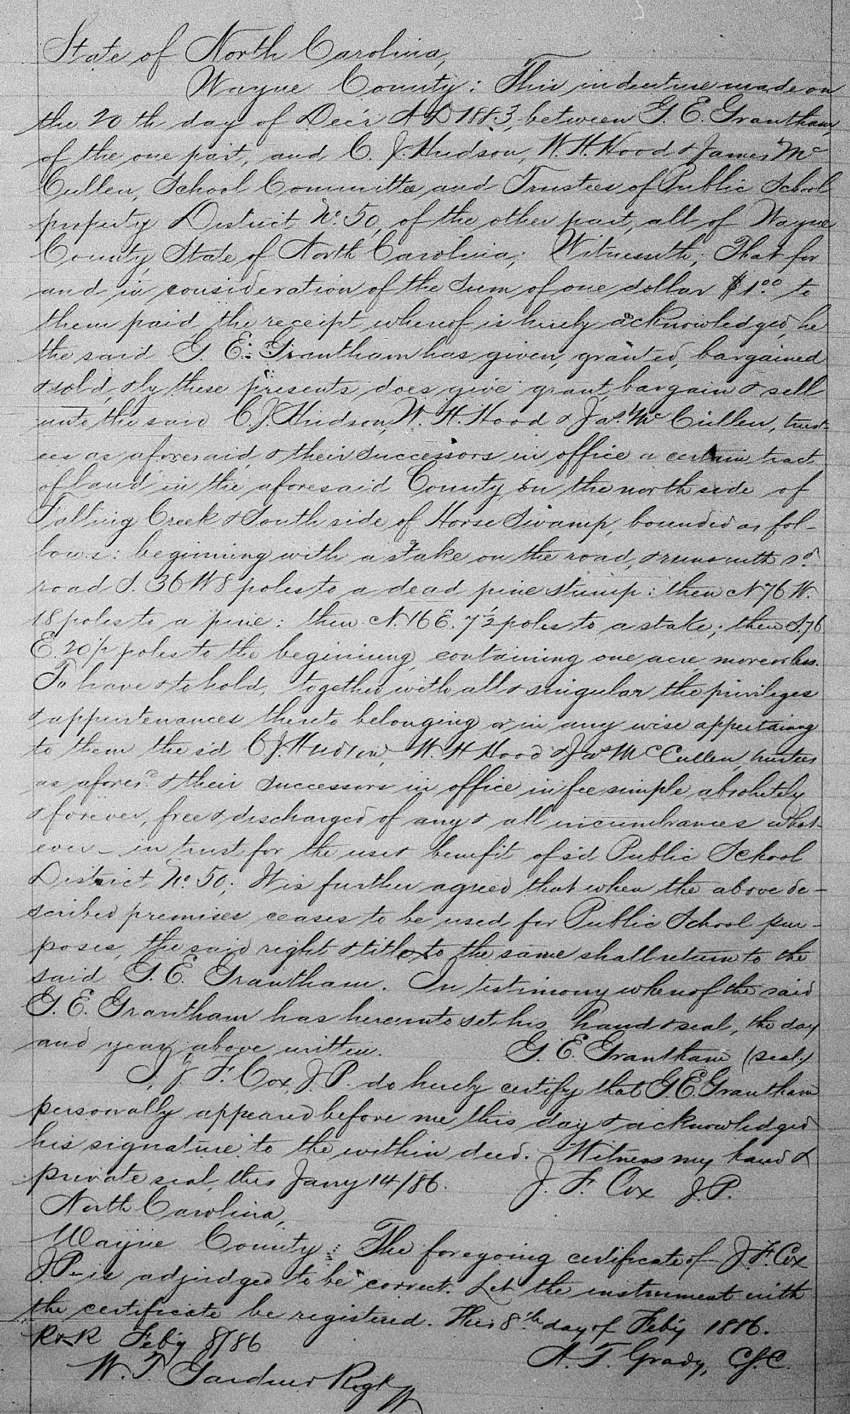 State of North Carolina,
Wayne County: This indenture made on
the 20th day of Dec'r A.D 1883, between G. E. Grantham
of the one part, and C. J. Hudson, W. H. Hood & James Mc
Cullen, School Committee and Trustees of Public School
property District No. 50, of the other part, all of Wayne
County, State of North Carolina; Witnesseth; That for
and in consideration of the sum of one dollar $1.00 to
them paid the receipt whereof is hereby acknowledged, he
the said G. E. Grantham has given, granted, bargained
& sold, & by these presents does give, grant, bargain & sell
unto the said C. J. Hudson, W. H. Hood & Jas. McCullen, trust-
ees as aforesaid, & their successors in office a certain tract
of land in the aforesaid County on the north side of
Falling Creek & South side of Horse Swamp, bounded as fol-
lows: beginning with a stake on the road, & runs with sd
road S. 36 W 8 poles to a dead pine stump: then N 76 W.
18 poles to a pine; then N. 16 E. 7½ poles to a stake; then S. 76
E. 20 poles to the beginning, containing one acre more or less.
To have & to hold, together with all & singular the privileges
& appurtenances thereto belonging or in any wise appertaining
to them the sd C. J. Hudson, W. H Hood & Jas McCullen, trustees
as afores'd & their successors in office in fee simple absolutely
& forever, free & discharged of any & all incumbrances what-
ever - in trust for the use & benefit of s'd Public School
District No. 50; It is further agreed that when the above de-
scribed premises ceases to be used for Public School pur-
poses, the said right & title to the same shall return to the
said G. E. Grantham. In testimony whereof the said
G. E. Grantham has hereunto set his hand & seal, the day
and year above written. G. E. Grantham (seal)
I, J. F. Cox, J. P. do hereby certify that G E Grantham
personally appeared before me this day & acknowledged
his signature to the within deed. Witness my hand &
private seal, this Jany 14/86. J. F. Cox J. P.
North Carolina,
Wayne County: The foregoing certificate of J. F. Cox
J P. is adjudged to be correct. Let the instrument with
the certificate be registered. This 8th day of Feb'y 1886.
Feb'y 8/86 A. T. Grady, C.S.C.
W. T. Gardner Regt